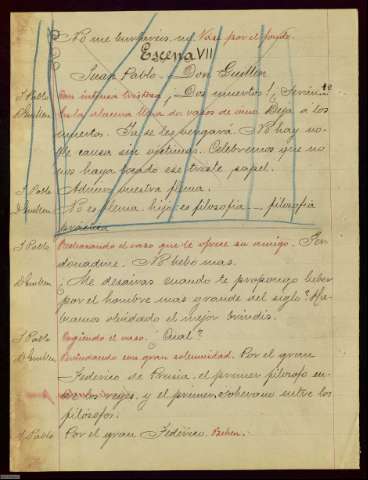 No me  Vase por el fondo.
Escena VII
Juan Pablo – Don Guillen
J Pablo Con intensa tristeza ¡Dos muertos!
D Guillen  la alacena llena dos vasos de vino Deja a los
muertos. Ya se les vengará. No hay no-
ble causa sin víctimas. Celebremos que no
nos haya tocado ese triste papel.
J. Pablo Admiro vuestra flema.
D Guillen No es flema hijo es filosofia – filosofia
práctica
J Pablo Rechazando el vaso que le ofrece su amigo. Per-
donadme. No bebo mas.
D Guillen ¿Me desairas cuando te propongo beber
por el hombre mas grande del siglo? Ha-
biamos olvidado el mejor brindis.
J Pablo Cogiendo el vaso. ¿Cual?
D Guillen Brindando con gran solemnidad. Por el gran
Federico de Prusia, el primer filosofo en-
tre los reyes y el primer soberano entre los
filósofos.
J Pablo Por el gran Federico. Beben.